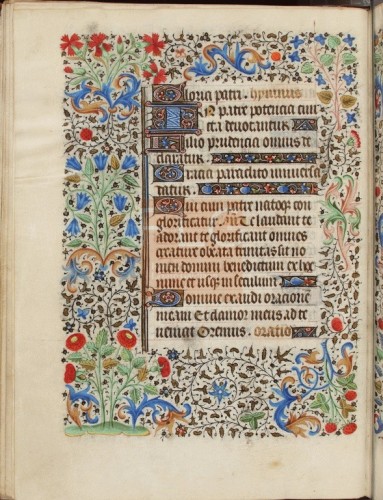 Gloria patri. Hymnus
In patre potencia cun
cta devotivitur
Filio prudencia omnis de
claratur
Gracia paraclito universa
tatur
Cum patre natoque con
glorificatur Te claudant te
adorant te glorificant omnes
creature o beata trinitas sit no
men domini benedictum ex hoc
nunc et usque in seculum
Domine exaudi oratione
meam Et clamor meus ad te
veniat Oremus. oratio